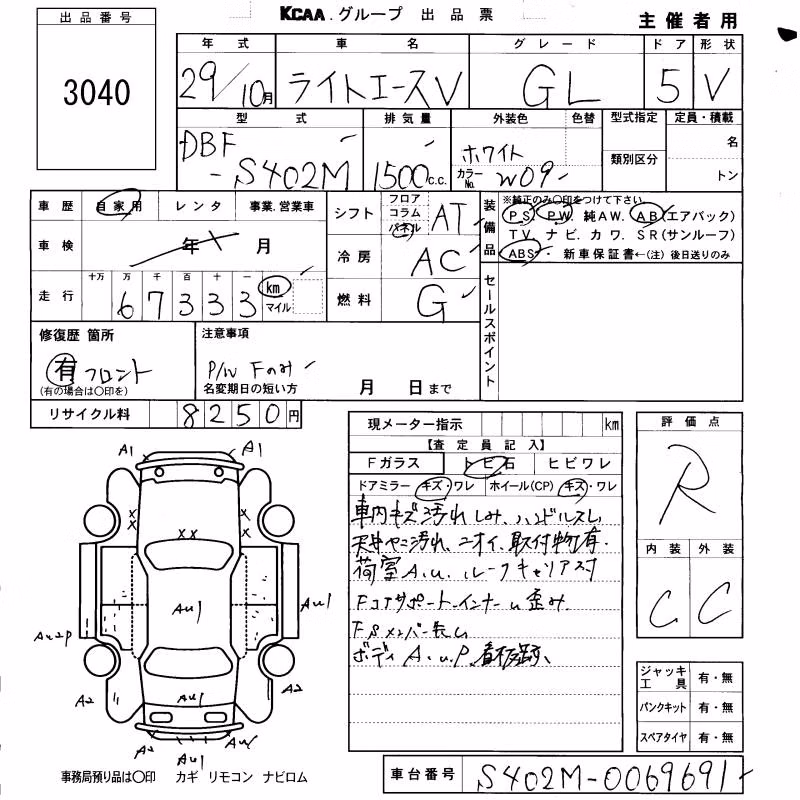 出品番号
3040
KCAA.グループ 出品票
主催者用
年式 車名 グレード ドア 形状
29/10月 ライトエースV GL 5 V
型式 排気量 外装色 色替 型式指定 定員・積載
DBF
-S402M 1500c.c. ホワイト
カラーNo. W09
類別区分 名
トン
車歴 自家用 レンタ 事業.営業車
車検 年 月
走行 十万 万 千 百 十 一
67333 km マイル
シフト フロア コラム パネル AT
冷房 AC
燃料 G
装備品 ※純正のみ〇印をつけて下さい
PS PW 純AW. AB(エアバック)
TV ナビ.カワ.SR(サンルーフ)
ABS・新車保証書←(注)後日送りのみ
セールスポイント
修復歴 箇所
有 フロント
(有の場合は〇印を)
注意事項
P/W Fのみ
名変期日の短い方 月 日まで
リサイクル料 8250円
現メーター指示 km
【査定員記入】
Fガラス トビ石 ヒビワレ
ドアミラー キズ・ワレ ホイール(CP) キズ・ワレ
車内キズ汚れしみ、ハンドルスレ
天井ヤニ汚れ、ニオイ、取付物有・
荷室A.u.、ルーフキャリア付
Fコアサポートインナーu歪み
ボディA.u.P、看板跡、
評価点
R
内装 外装
C C
ジャッキ工具 有・無
パンクキット 有・無
スペアタイヤ 有・無
A1 A1
XX XX
XX
Au1 Au1
Au2P
A2 Au1 A2
A2 Au1
事務局預り品は〇印 カギ リモコン ナビロム
車台番号 S402M-0069691